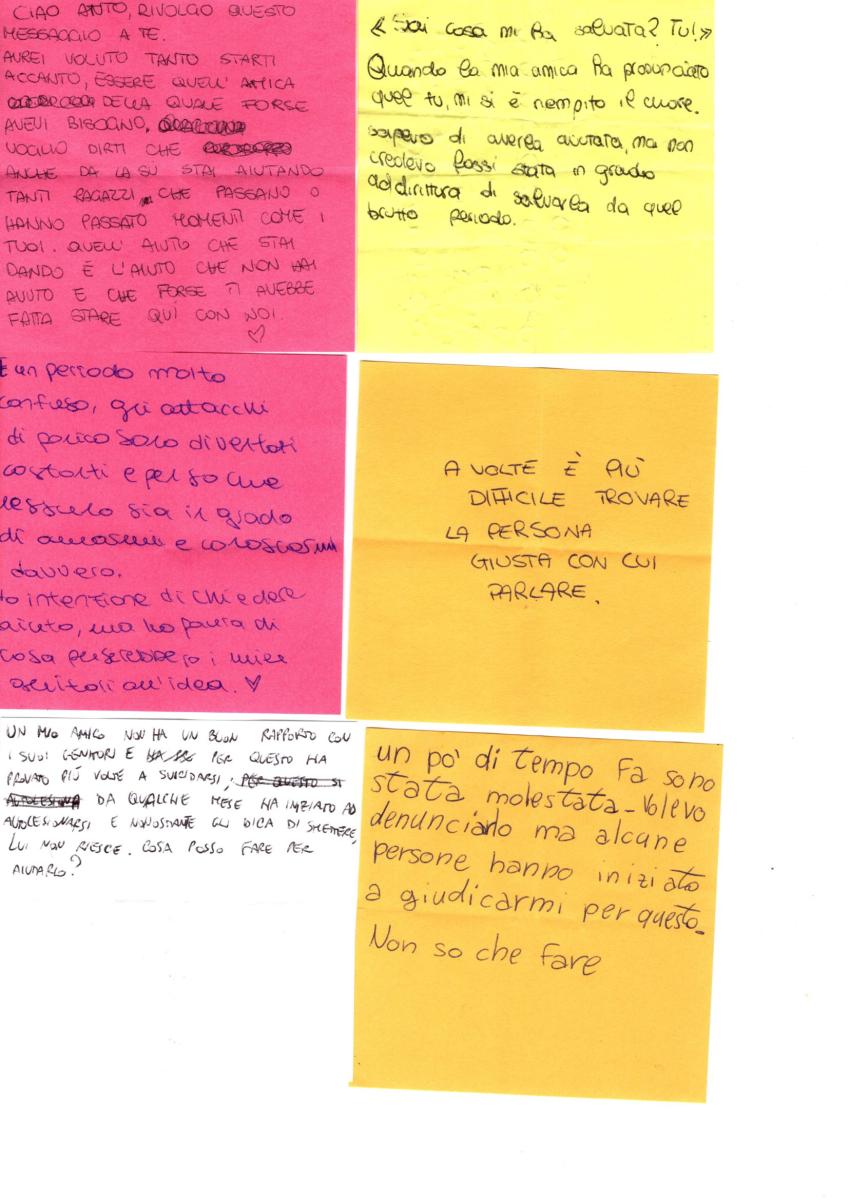 CIAO ANTO, RIVOLGO QUESTO
MESSAGGIO A TE.
AVREI VOLUTO TANTO STARTI
ACCANTO, ESSERE QUELL'AMICA
DELLA QUALE FORSE
AVEVI BISOGNO,
VOGLIO DIRTI CHE
ANCHE DA LA SU STAI AIUTANDO
TANTI RAGAZZI CHE PASSANO O
HANNO PASSATO MOMENTI COME I
TUOI. QUELL'AIUTO CHE STAI
DANDO È L'AIUTO CHE NON HAI
AVUTO E CHE FORSE TI AVEBBE
FATTA STARE QUÌ CON NOI.
«Sai cosa mi ha salvata? Tu!»
Quando la mia amica ha pronunciato
quel tu, mi si è riempito il cuore.
sapevo di averla aiutata, ma non
credevo fossi stata in grado
addirittura di salvarla da quel
brutto periodo.
È un periodo molto
confuso, gli attacchi
di panico sono diventati
costanti e penso che
nessuno sia in grado
di amarmi e conoscermi
davvero.
Ho intenzione di chiedere
aiuto, ma ho paura di
cosa penserebbero i miei
genitori all'idea.
A VOLTE È PIÙ
DIFFICILE TROVARE
LA PERSONA
GIUSTA CON CUI
PARLARE.
UN MIO AMICO NON HA UN BUON RAPPORTO CON
I SUOI GENITORI E PER QUESTO HA
PROVATO PIÙ VOLTE A SUICIDARSI, PER QUESTO SI
DA QUALCHE MESE HA INIZIATO AD
AUTOLESIONARSI E NONOSTANTE GLI DICA DI SMETTERE,
LUI NON RIESCE. COSA POSSO FARE PER
AIUTARLO?
un po' di tempo fa sono
stata molestata_ Volevo
denunciarlo ma alcune
persone hanno iniziato
a giudicarmi per questo_
Non so che fare